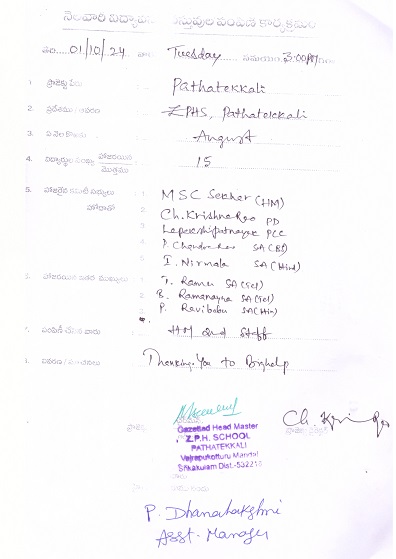 నెలవారీ విద్యా వస్తువుల పంపిణీ కార్యక్రమం
తేది..... 01/10/24 వారం Tuesday సమయం 3:00PM
1. ప్రాజెక్టు పేరు Pathatekkali
2. ప్రదేశము / ZPHS, Pathatekkali
3. ఏ నెల కొరకు August
4. విద్యార్థుల సంఖ్య హాజరయిన 15
మొత్తము
5. హాజరైన కమిటీ సభ్యులు 1. MSC Sekhar (HM)
2. Ch. Krishna Rao PD
3. PCC
4. P. Chandra Rao SA (BS)
5. I. Nirmala SA (Hind)
6. హాజరయిన ఇతర ముఖ్యులు 1. T. Ramu SA (Tel)
2. B. Ramanayya SA (Tel)
3. P. Ravibabu SA (Hin)
7. పంపిణీ చేసిన వారు HM and Staff
8. Thanking You to Bighelp
Ch. Kri
Gazetted Head Master
Z.P.H. SCHOOL
PATHATEKKALI
Vajrapukotturu Mandal
Srikakulam Dist.-532218
P. Dhanalakshmi
Asst. Manager